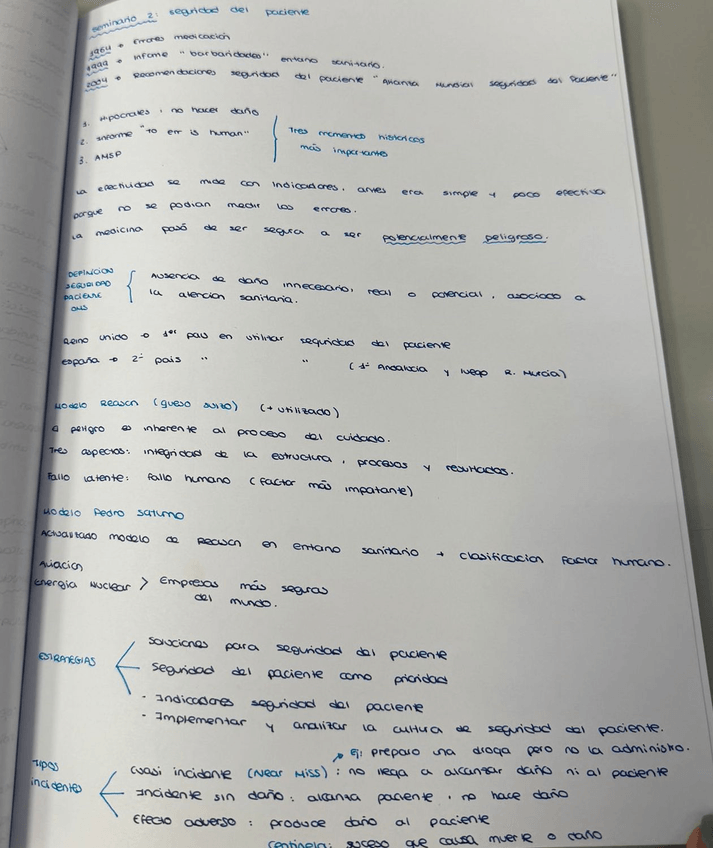 seminario 2: seguridad del paciente
1964 → Errores medicación
1999 → Informe "barbaridades" entorno sanitario.
2004 → Recomendaciones seguridad del paciente "Alianza Mundial seguridad del Paciente"
1. Hipócrates, no hacer daño
2. Informe "to err is human"
3. AMSP
Tres momentos históricos
más importantes
La efectividad se mide con indicadores, antes era simple y poco efectiva
porque no se podían medir los errores.
La medicina pasó de ser segura a ser potencialmente peligrosa.
DEFINICIÓN
SEGURIDAD
PACIENTE
OMS
Ausencia de daño innecesario, real o potencial, asociado a
la atención sanitaria.
Reino Unido → 1er país en utilizar seguridad del paciente
España → 2º país " " (1º Andalucía y luego R. Murcia)
Modelo Reason (queso suizo) (+ utilizado)
El peligro es inherente al proceso del cuidado.
Tres aspectos: integridad de la estructura, procesos y resultados.
Fallo latente: fallo humano (factor más importante)
Modelo Pedro Saturno
Actualizado modelo de Reason en entorno sanitario → clasificación factor humano.
Aviación
Energía Nuclear > Empresas más seguras
del mundo.
ESTRATEGIAS
Soluciones para seguridad del paciente
Seguridad del paciente como prioridad
- Indicadores seguridad del paciente
- Implementar y analizar la cultura de seguridad del paciente.
Ej: preparo una droga pero no la administro.
Tipos
incidentes
Cuasi incidente (Near Miss): no llega a alcanzar daño ni al paciente
Incidente sin daño: alcanza paciente, no hace daño
Efecto adverso: produce daño al paciente
Centinela: suceso que causa muerte o daño